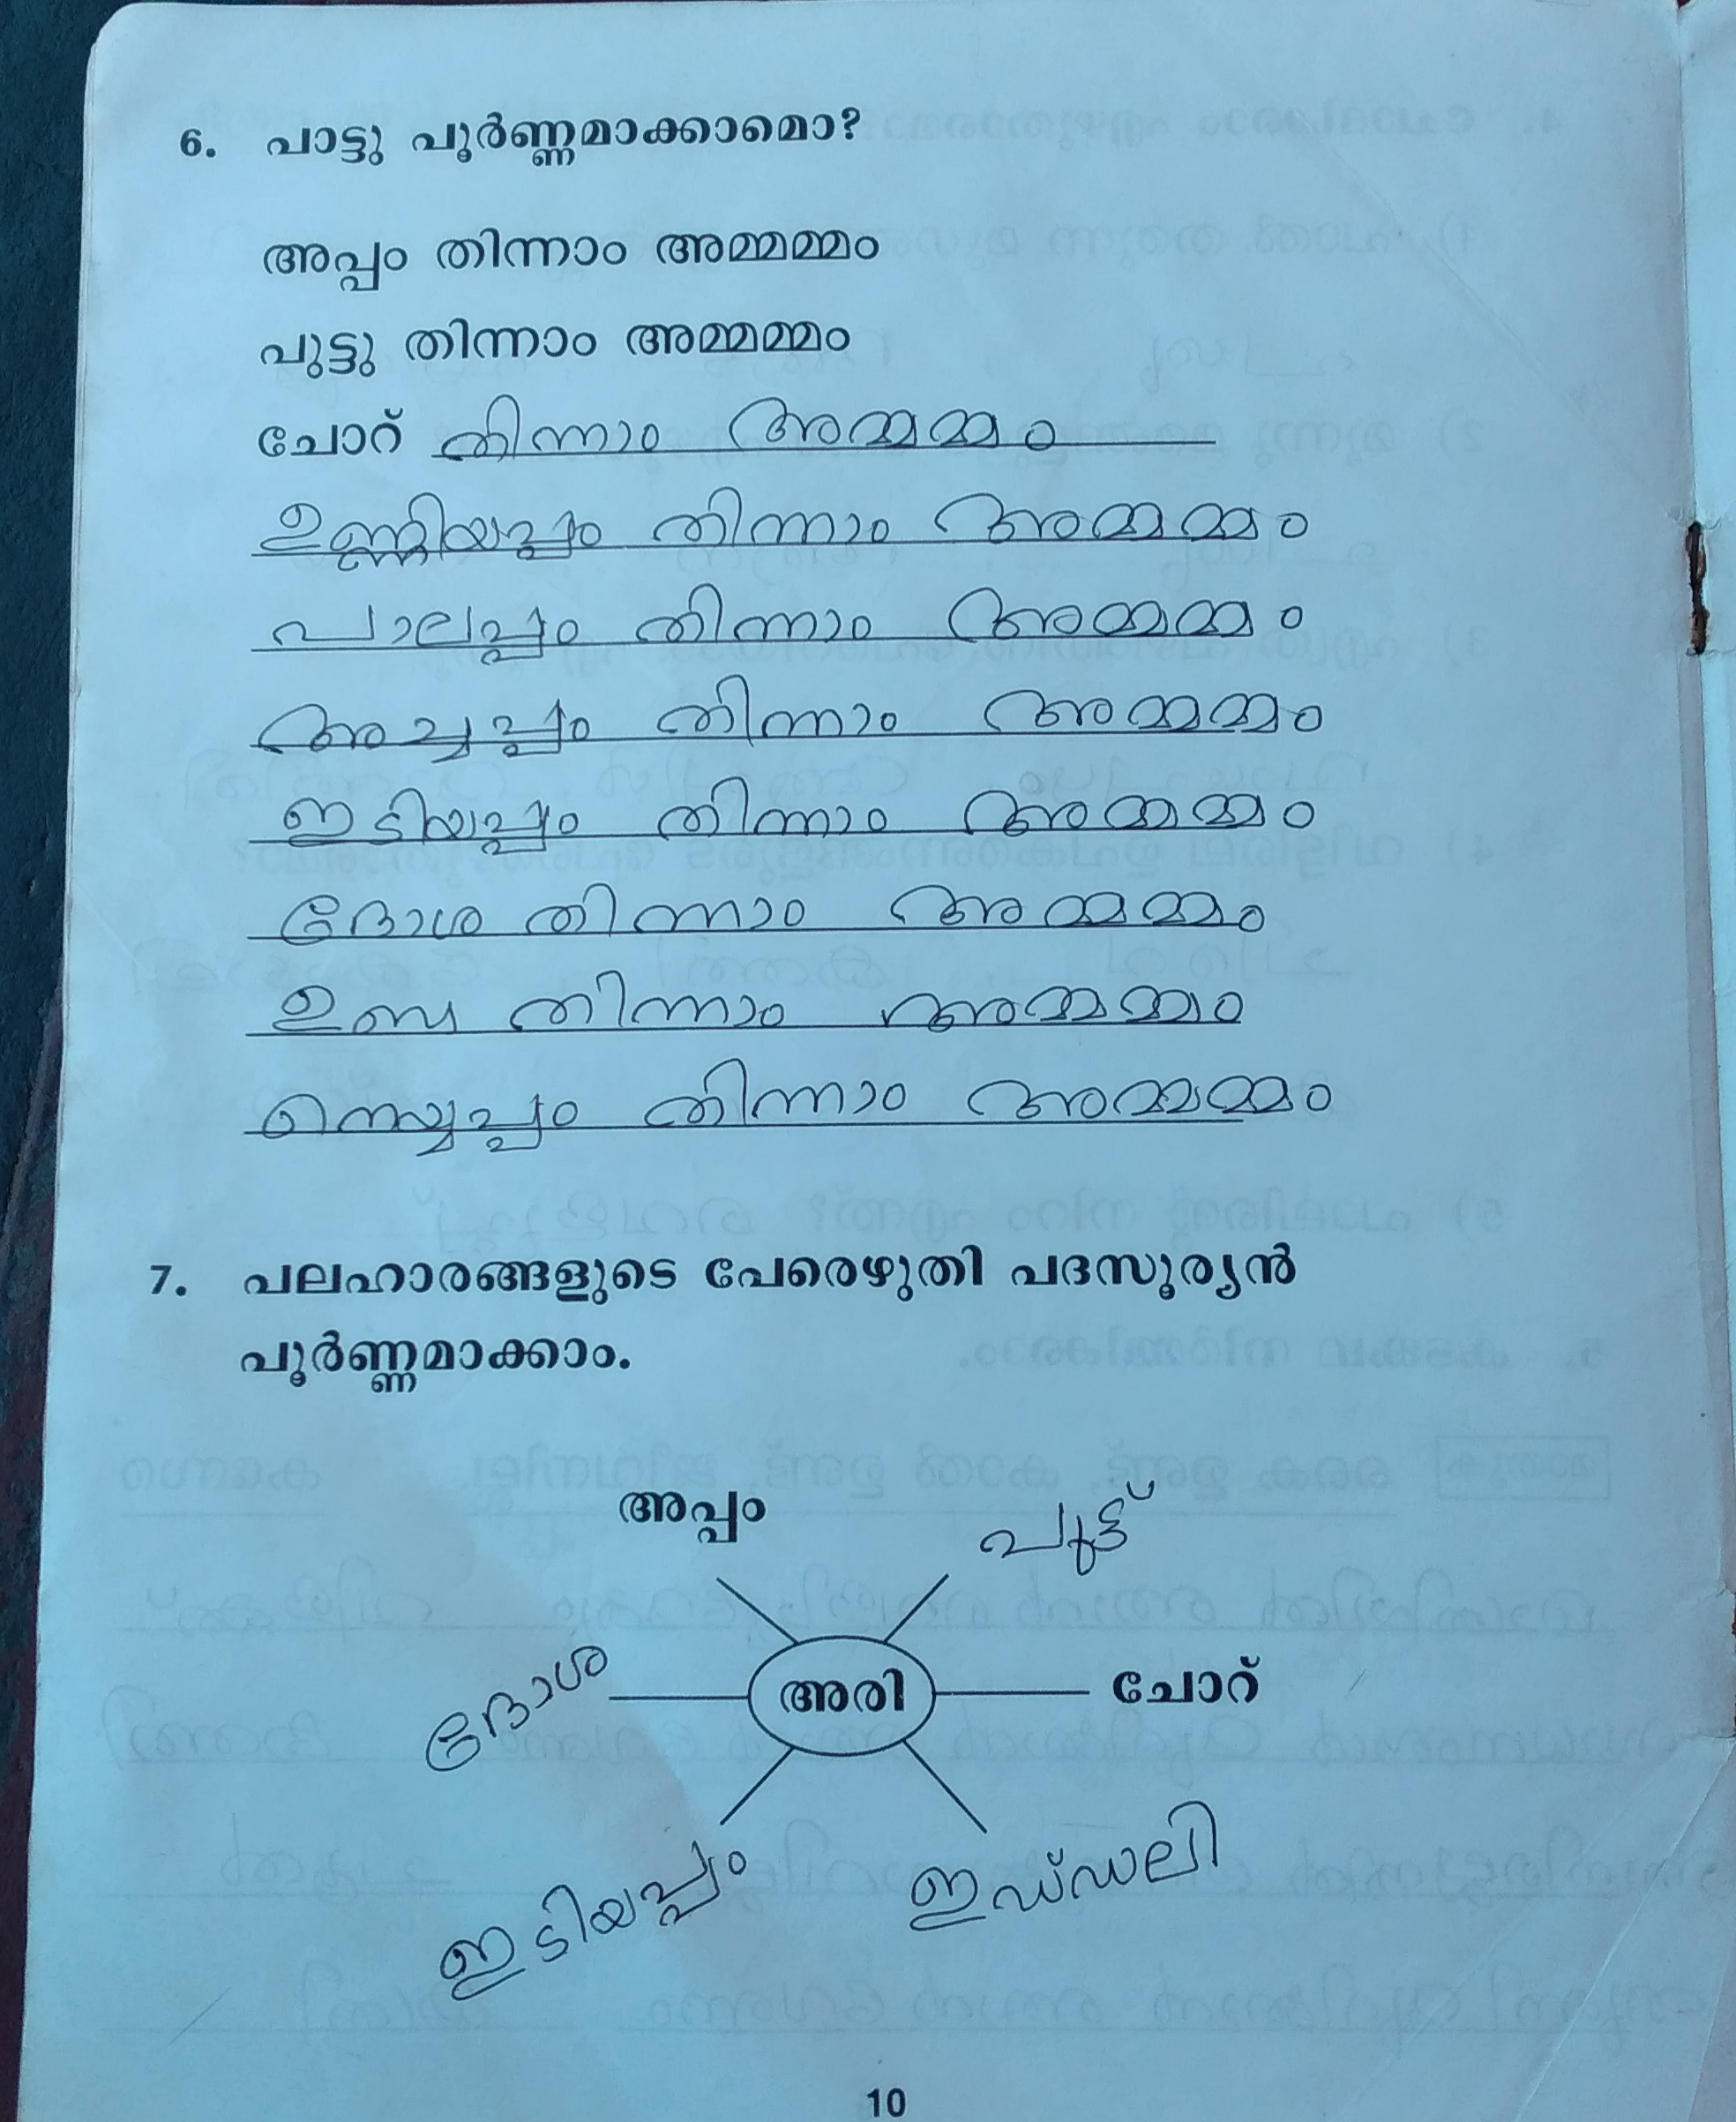 6. പാട്ടു പൂർണ്ണമാക്കാമൊ?
അപ്പം തിന്നാം അമ്മമ്മം
പുട്ടു തിന്നാം അമ്മമ്മം
ചോറ് തിന്നാം അമ്മമ്മം
ഉണ്ണിയപ്പം തിന്നാം അമ്മമ്മം
പാലപ്പം തിന്നാം അമ്മമ്മം
അച്ചപ്പം തിന്നാം അമ്മമ്മം
ഇടിയപ്പം തിന്നാം അമ്മമ്മം
ദോശ തിന്നാം അമ്മമ്മം
ഉണ്ട തിന്നാം അമ്മമ്മം
നെയ്യപ്പം തിന്നാം അമ്മമ്മം
7. പലഹാരങ്ങളുടെ പേരെഴുതി പദസൂര്യൻ
പൂർണ്ണമാക്കാം.
അപ്പം പുട്ട്
ദോശ അരി ചോറ്
ഇടിയപ്പം ഇഡ്ഡലി
10